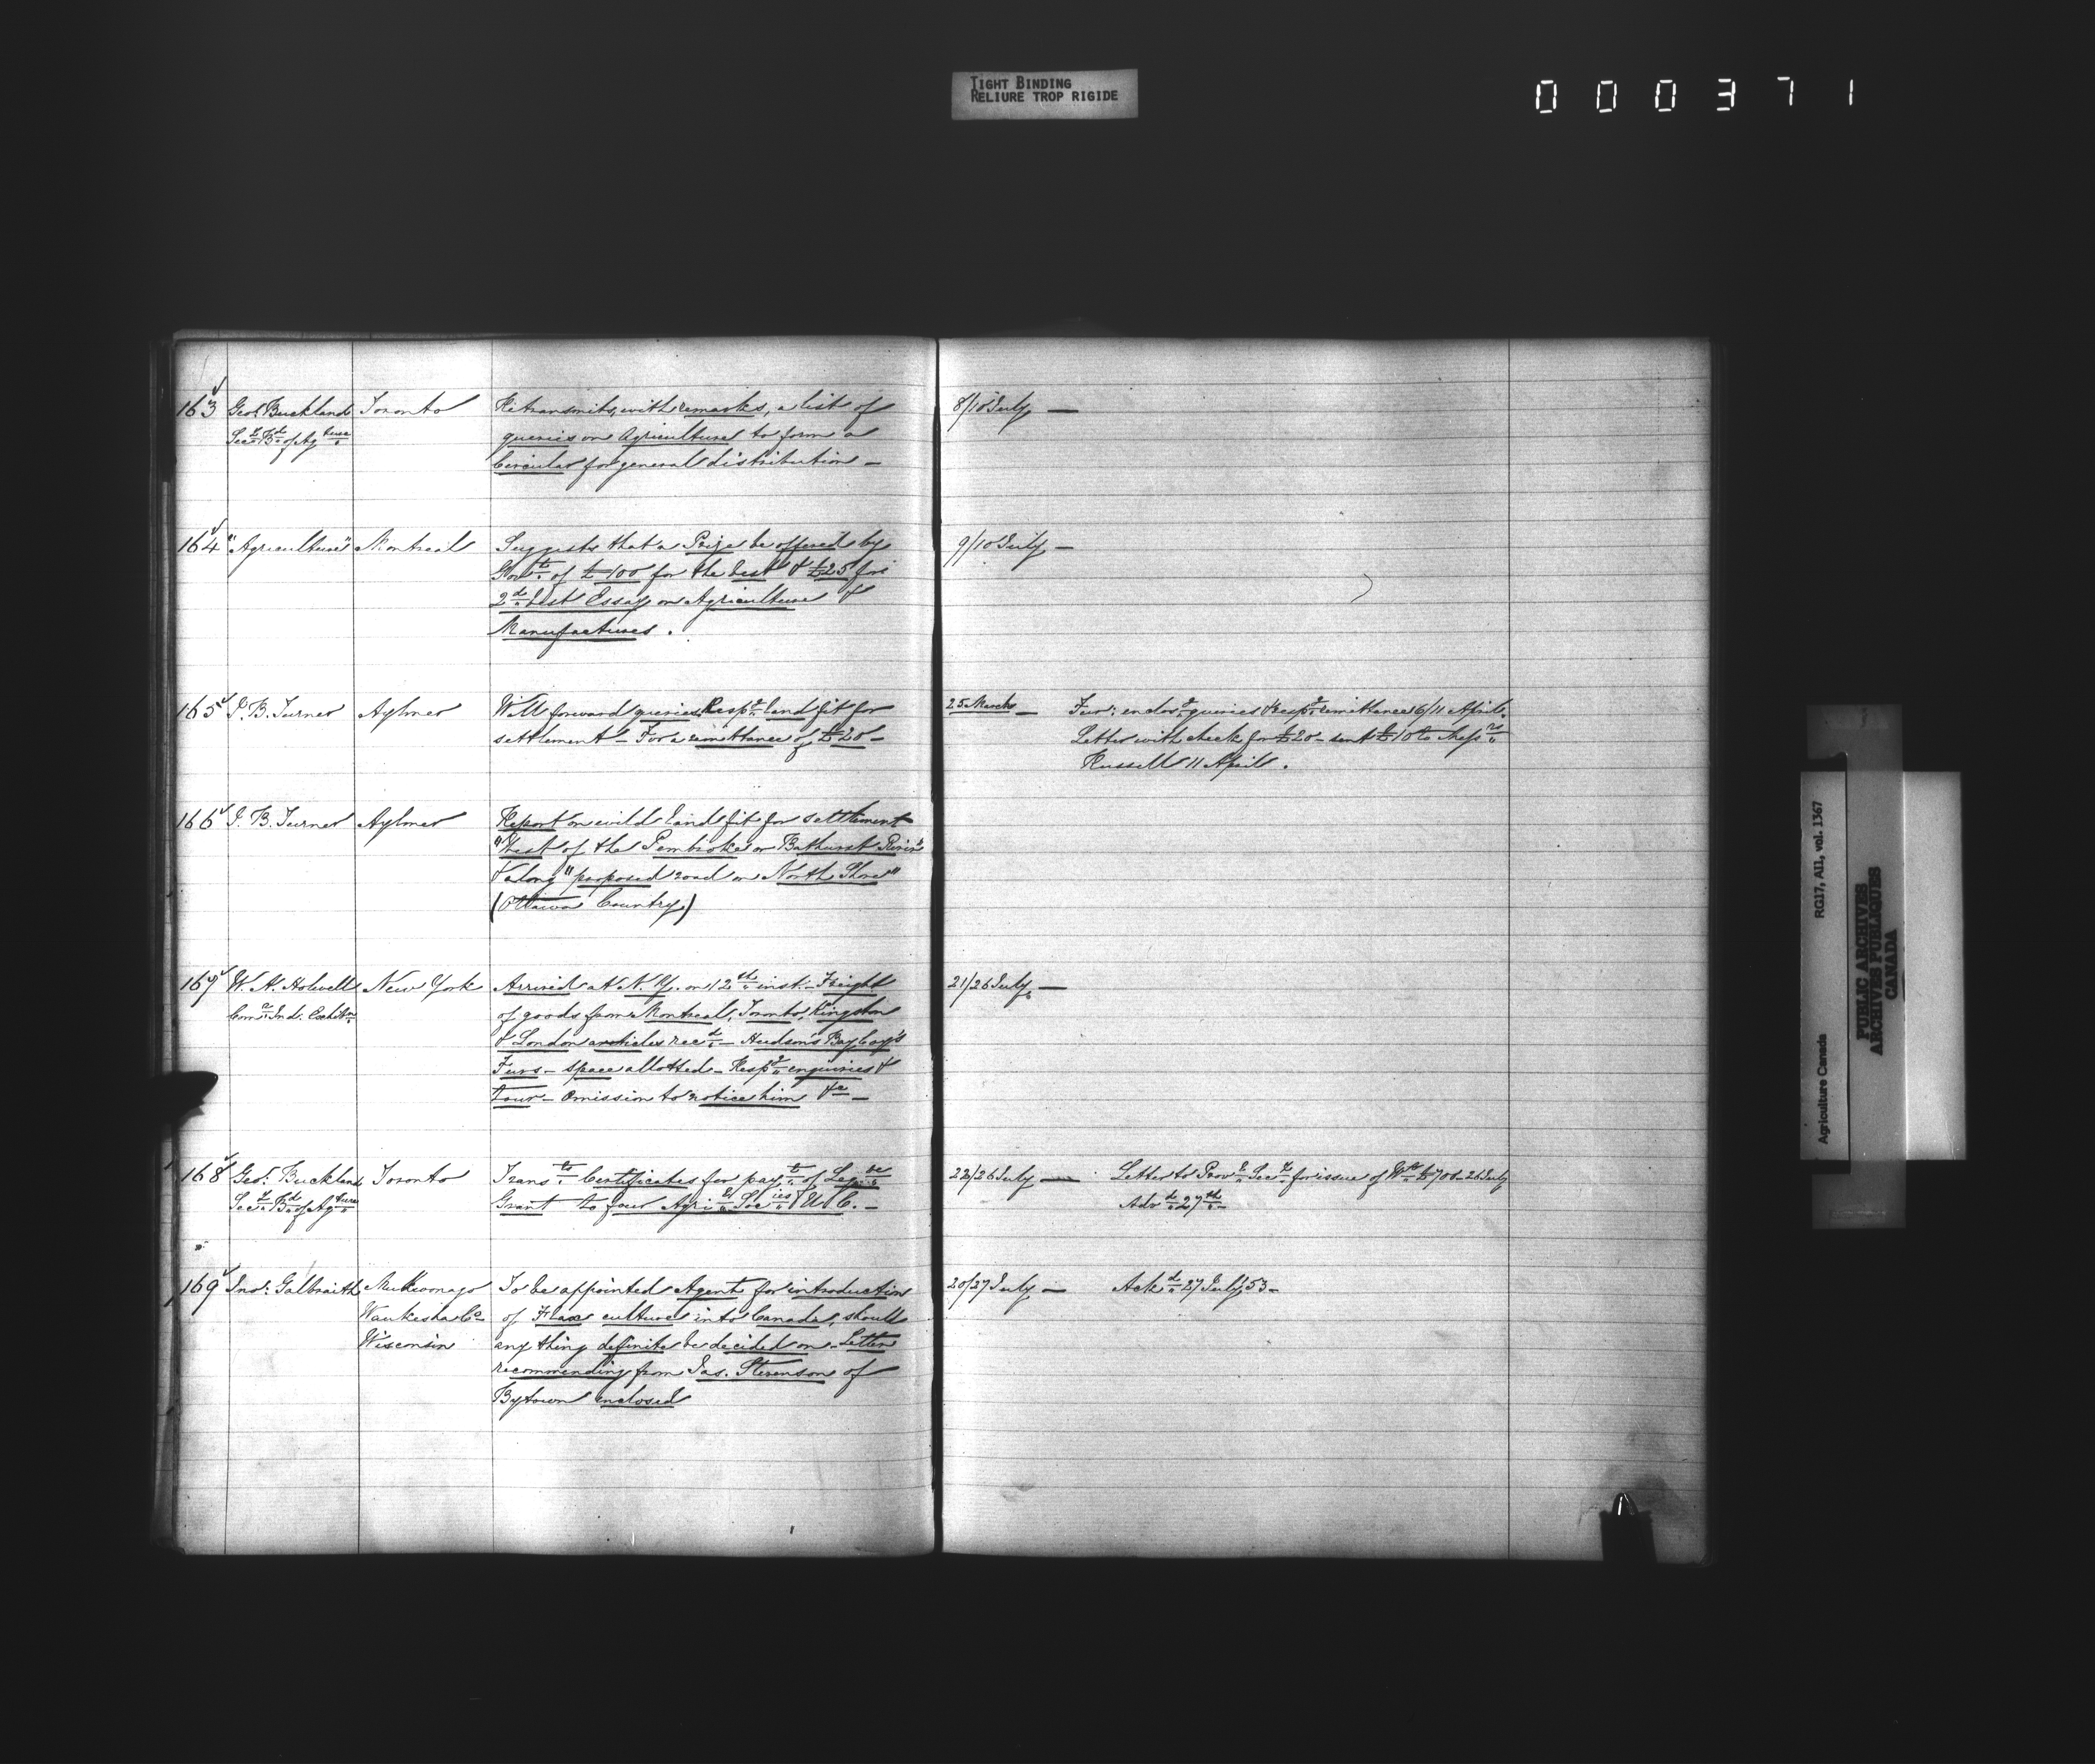 TIGHT BINDING
RELIURE TROP RIGIDE
000371
163 Geo: Buckland Toronto Retransmits, with remarks, a list of 8/10 July —
Secy Bd of Agture queries on Agriculture to form a
Circular for general distribution —
164 "Agriculture" Montreal Suggests that a Prize be offered by 9/10 July —
Govt of £100 for the best & £25 for
2d best Essay on Agriculture &
Manufactures.
165 J. B. Turner Aylmer Will forward queries Respg land fit for 25 March — Fur: enclosg queries & respg remittance 6/11 April.
settlement — For a remittance of £20 — Letter with check for £20 — sent £10 to Messrs
Russell 11 April.
166 J. B. Turner Aylmer Report on wild land fit for settlement
"West of the Pembroke or Bathurst River"
& along "proposed road on North Shore"
(Ottawa Country)
167 W. A. Holwell New York Arrived at N. Y. on 12th inst. — Freight 21/26 July —
Comr Ind: Exhibn of goods from Montreal, Toronto, Kingston
& London articles recd — Hudson's Bay Coy's
Furs — space allotted — Respg enquiries &
tour — Omission to notice him &c —
168 Geo: Buckland Toronto Transts Certificates for payt of Legve 22/26 July — Letter to Provl Secy for issue of Wts £708 — 26 July
Secy Bd of Agture Grant to four Agril Socies U. C. — Advd 27th —
169 Jno: Galbraith Mukwonago To be appointed Agent for introduction 20/27 July — Ackd 27 July, 53 —
Waukesha Co of Flax culture into Canada, should
Wisconsin any thing definite be decided on — Letter
recommending from Jas. Stevenson of
Bytown enclosed
Agriculture Canada RG17, AII, vol. 1367
PUBLIC ARCHIVES
ARCHIVES PUBLIQUES
CANADA